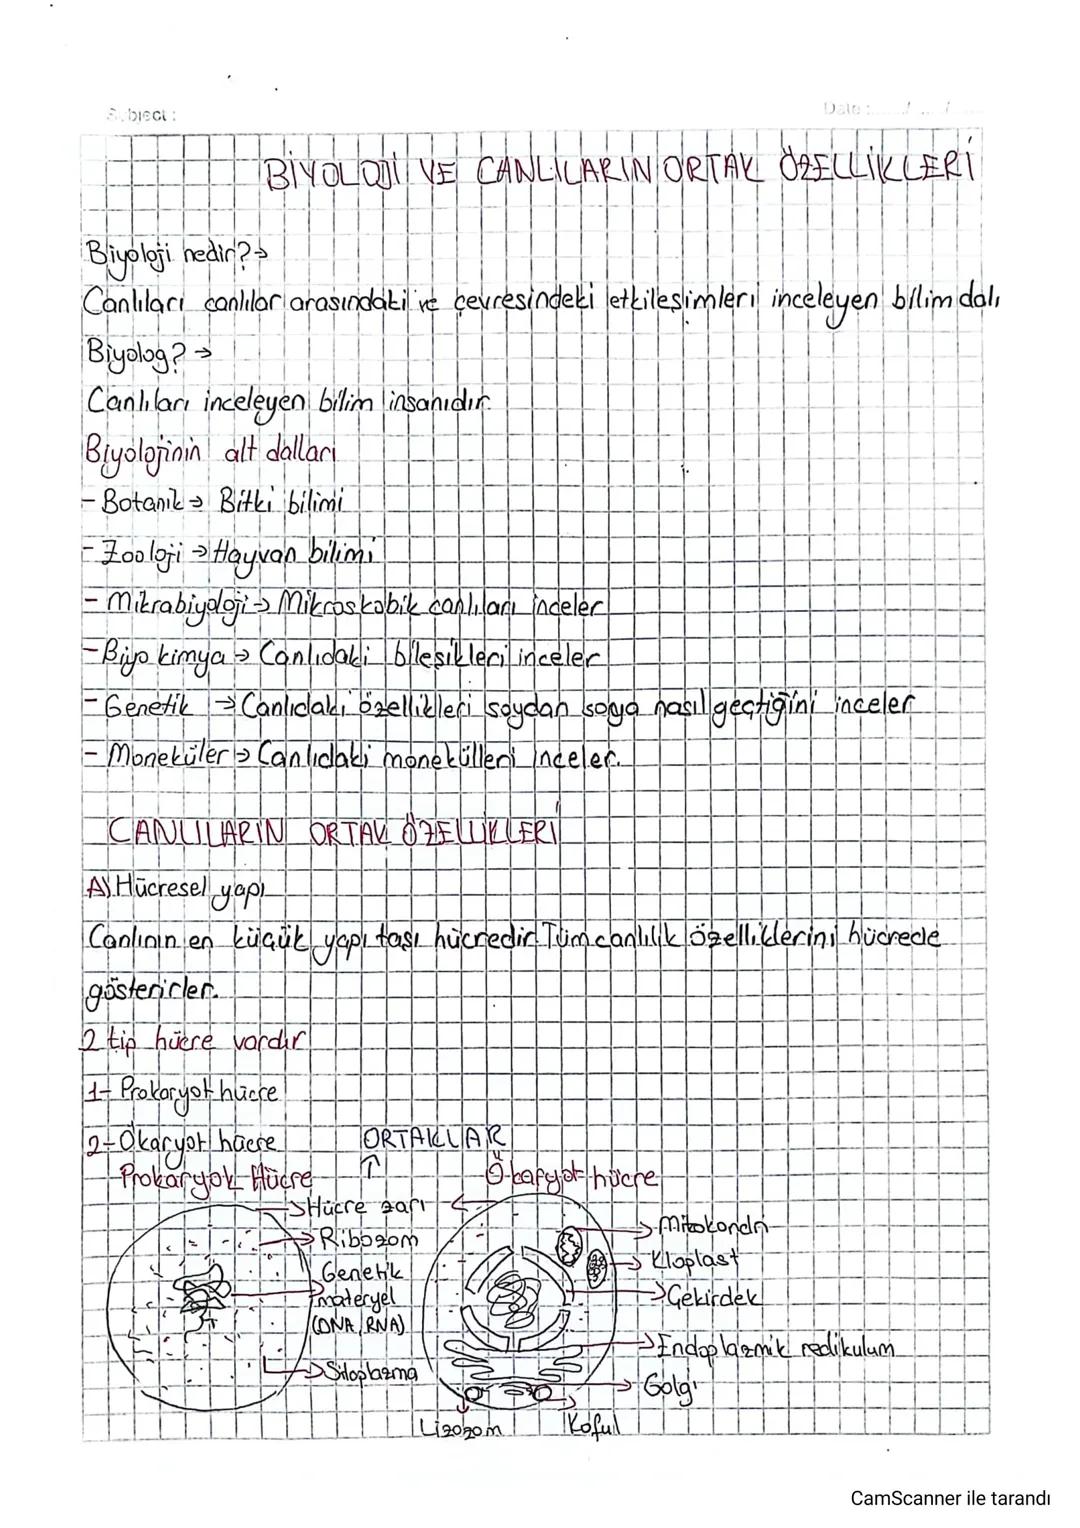 Subject :
Date : ..... / ..... / .....
BİYOLOJİ VE CANLILARIN ORTAK ÖZELLİKLERİ
Biyoloji nedir? →
Canlıları canlılar arasındaki ve çevresindeki etkileşimleri inceleyen bilim dalı
Biyolog? →
Canlıları inceleyen bilim insanıdır.
Biyolojinin alt dalları
- Botanik → Bitki bilimi
- Zooloji → Hayvan bilimi
- Mikrabiyoloji → Mikroskobik canlıları inceler
- Biyo kimya → Canlıdaki bileşikleri inceler
- Genetik → Canlıdaki özellikleri soydan soya nasıl geçtiğini inceler
- Moneküler → Canlıdaki monekülleri inceler.
CANLILARIN ORTAK ÖZELLİKLERİ
A) Hücresel yapı
Canlının en küçük yapı taşı hücredir. Tüm canlılık özelliklerini hücrede
gösterirler.
2 tip hücre vardır
1- Prokaryot hücre
2- Ökaryot hücre
ORTAKLLAR
Prokaryok Hücre
Ökaryot hücre
→ Hücre zarı ←
→ Ribozom
Genetik
materyel
(DNA, RNA)
→ Sitoplazma
→ Mitokondri
→ Kloplast
→ Çekirdek
→ Endoplazmik redikulum
→ Golgi
Lizozom
Koful
CamScanner ile tarandı